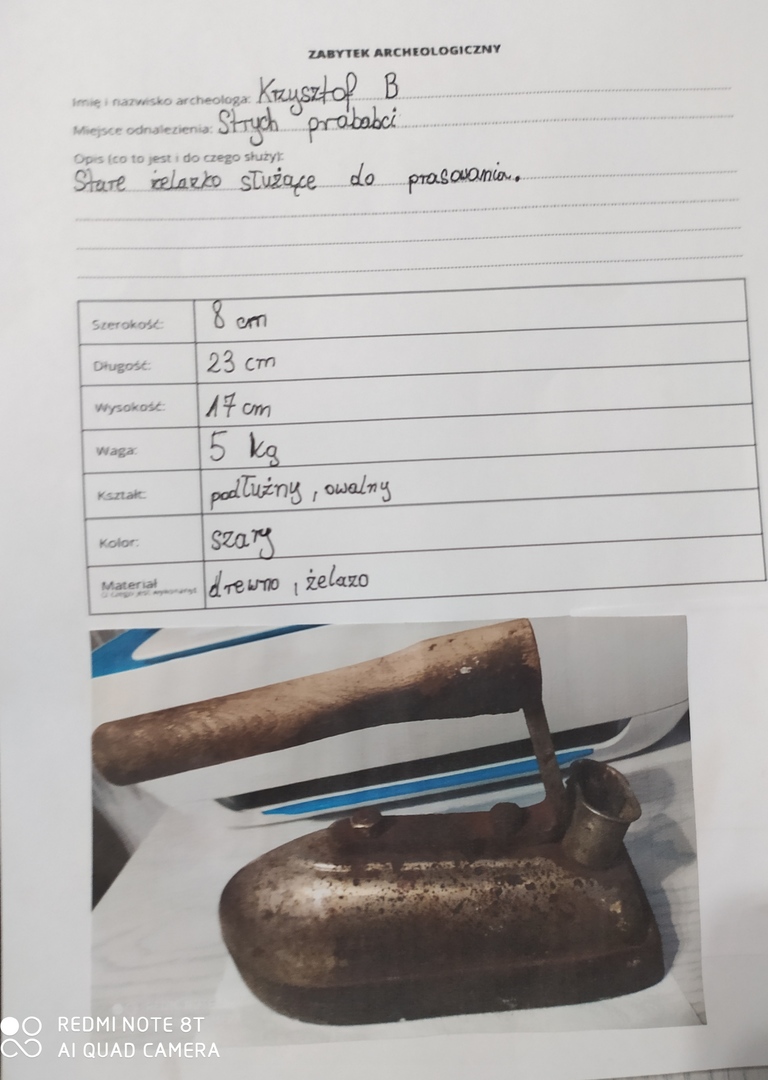 ZABYTEK ARCHEOLOGICZNY
Imię i nazwisko archeologa: Krzysztof B
Miejsce odnalezienia: Strych prababci
Opis (co to jest i do czego służy):
Stare żelazko służące do prasowania.
Szerokość: 8 cm
Długość: 23 cm
Wysokość: 17 cm
Waga: 5 kg
Kształt: podłużny, owalny
Kolor: szary
Materiał drewno, żelazo
z czego jest wykonany?
REDMI NOTE 8T
AI QUAD CAMERA